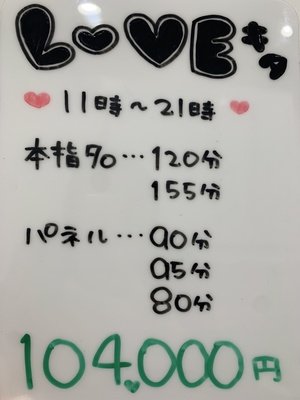 LOVEキタ
11時〜21時
本指70…120分
155分
パネル…90分
95分
80分
104,000円